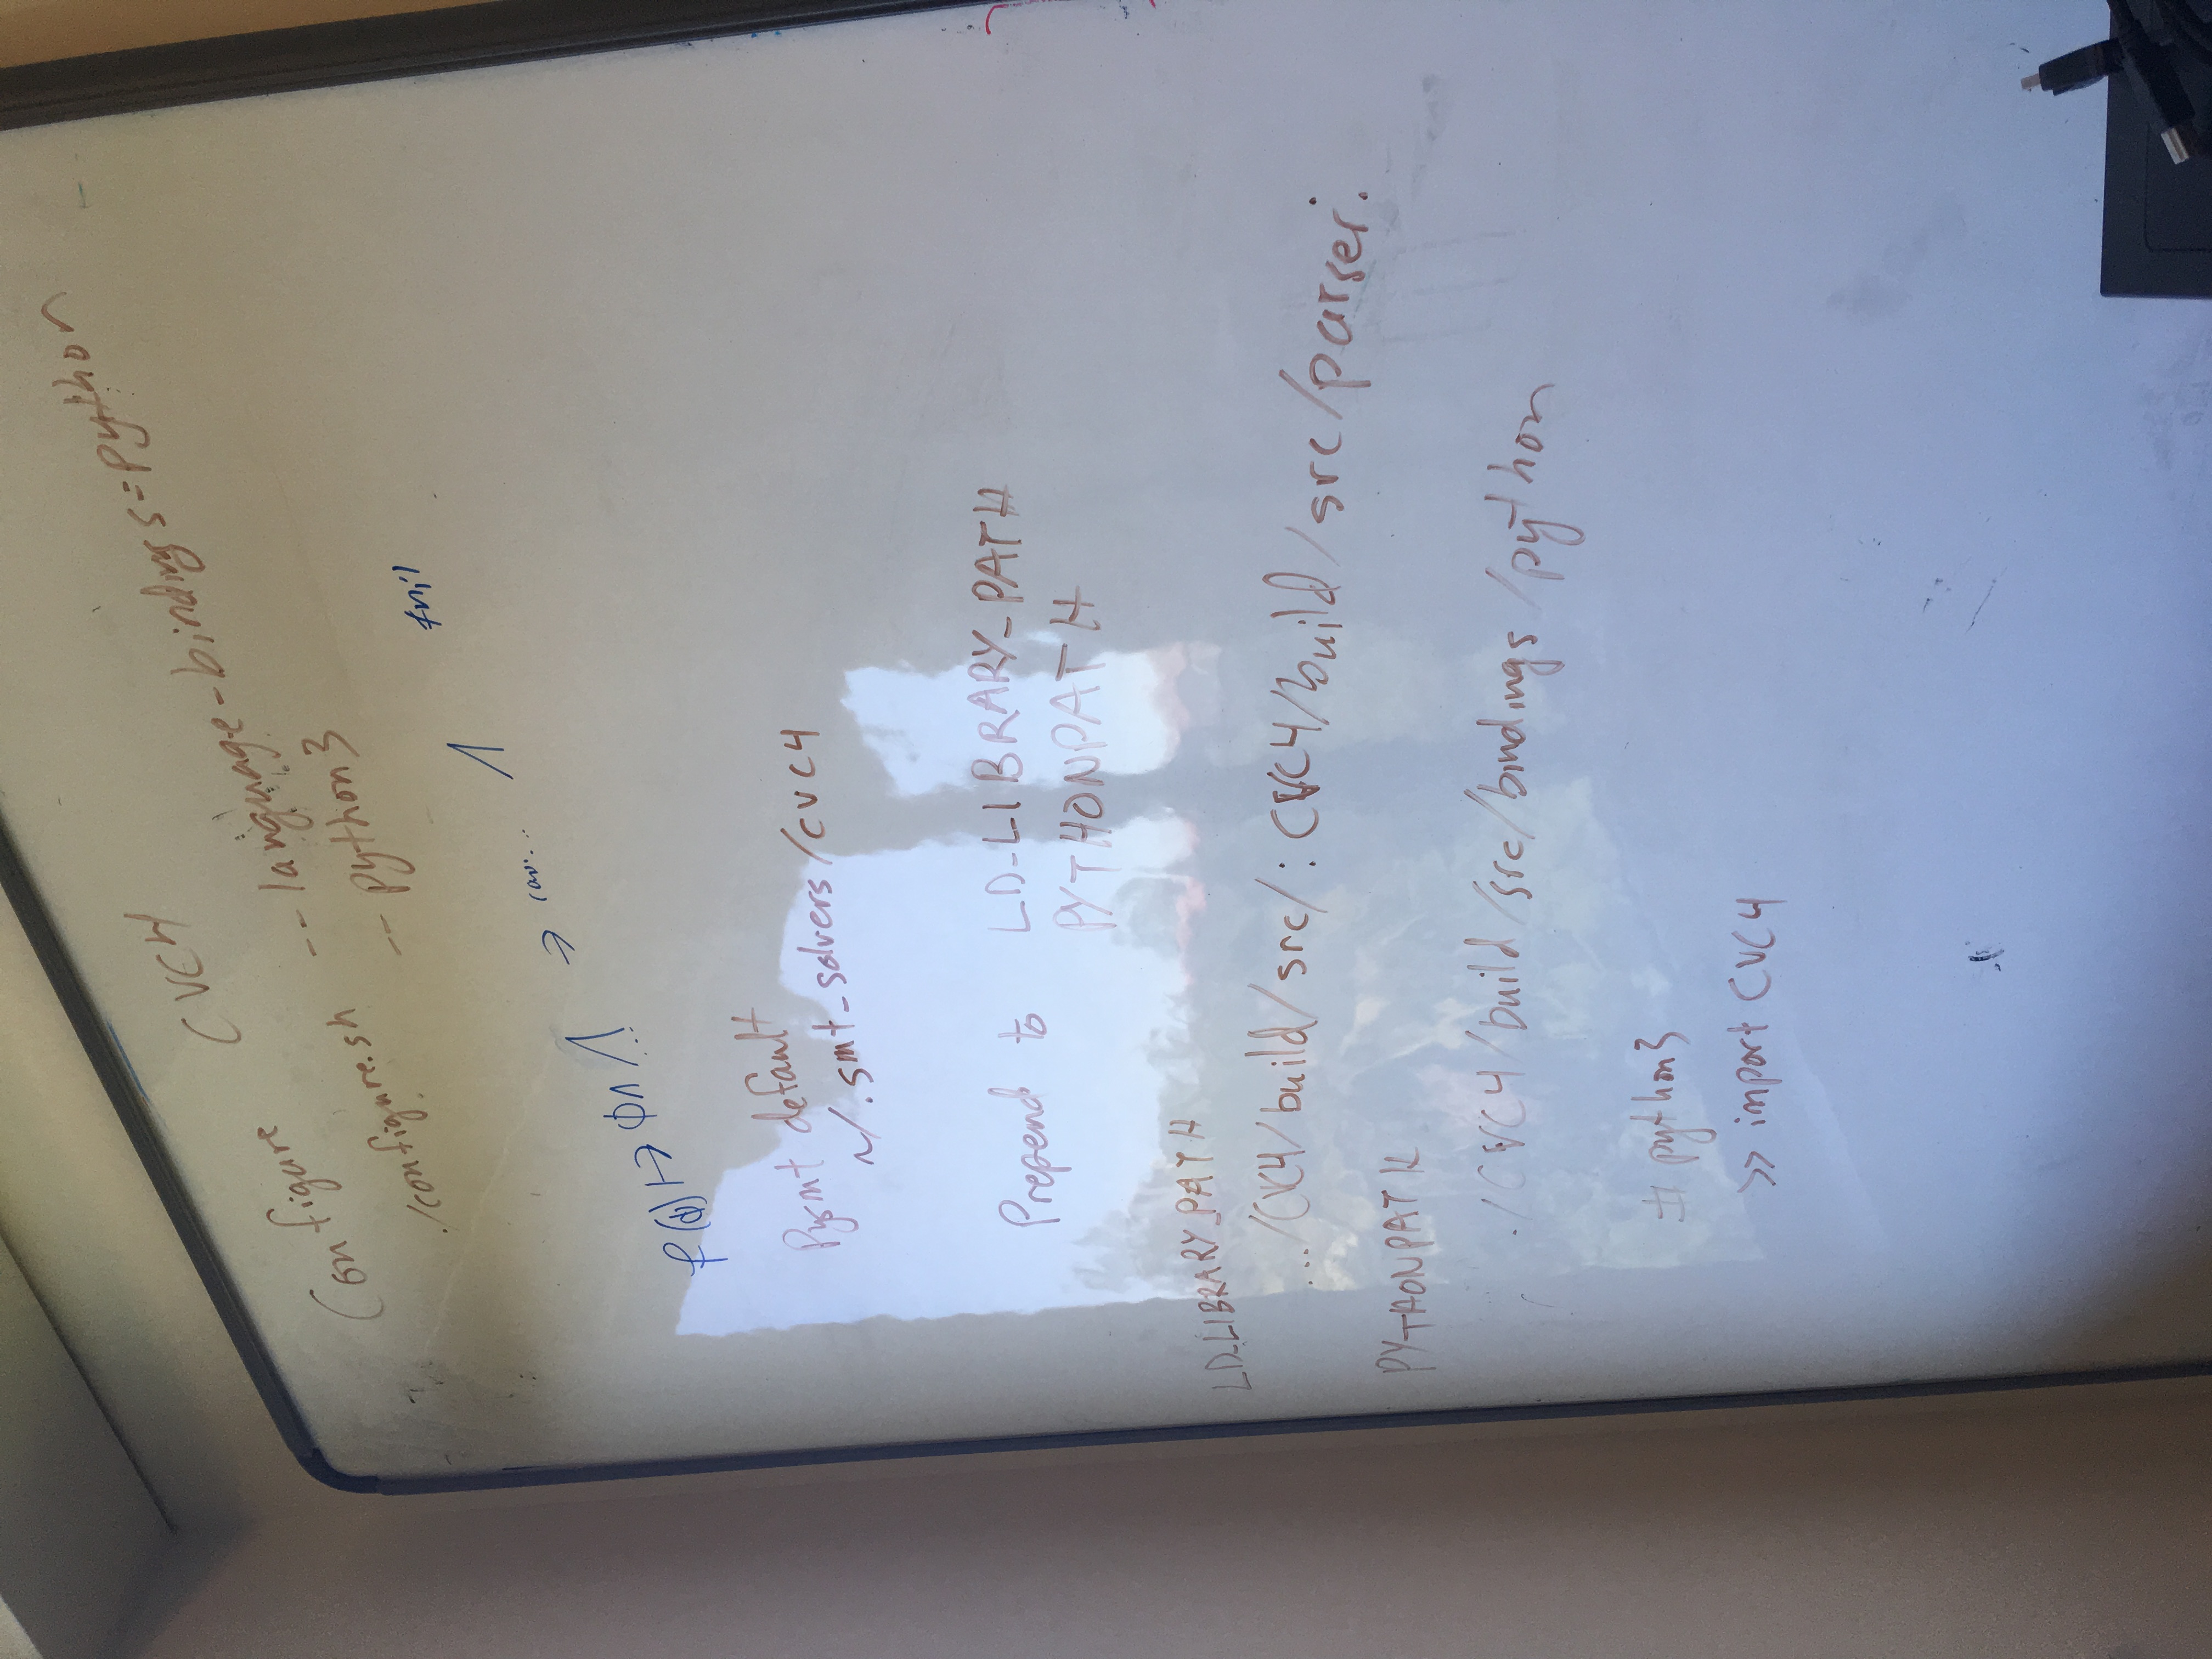 Configure CVC4
./configure.sh --language-bindings=python
--python3
≠nil
f(ϕ) ↦ ϕ ∧ ⋀ ... ⇒ ... ⋀
Pysmt default
~/.smt_solvers/CVC4
Prepend to LD_LIBRARY_PATH
PYTHONPATH
LD_LIBRARY_PATH
.../CVC4/build/src/:CVC4/build/src/parser:
PYTHONPATH
./CVC4/build/src/bindings/python
# python3
>> import CVC4